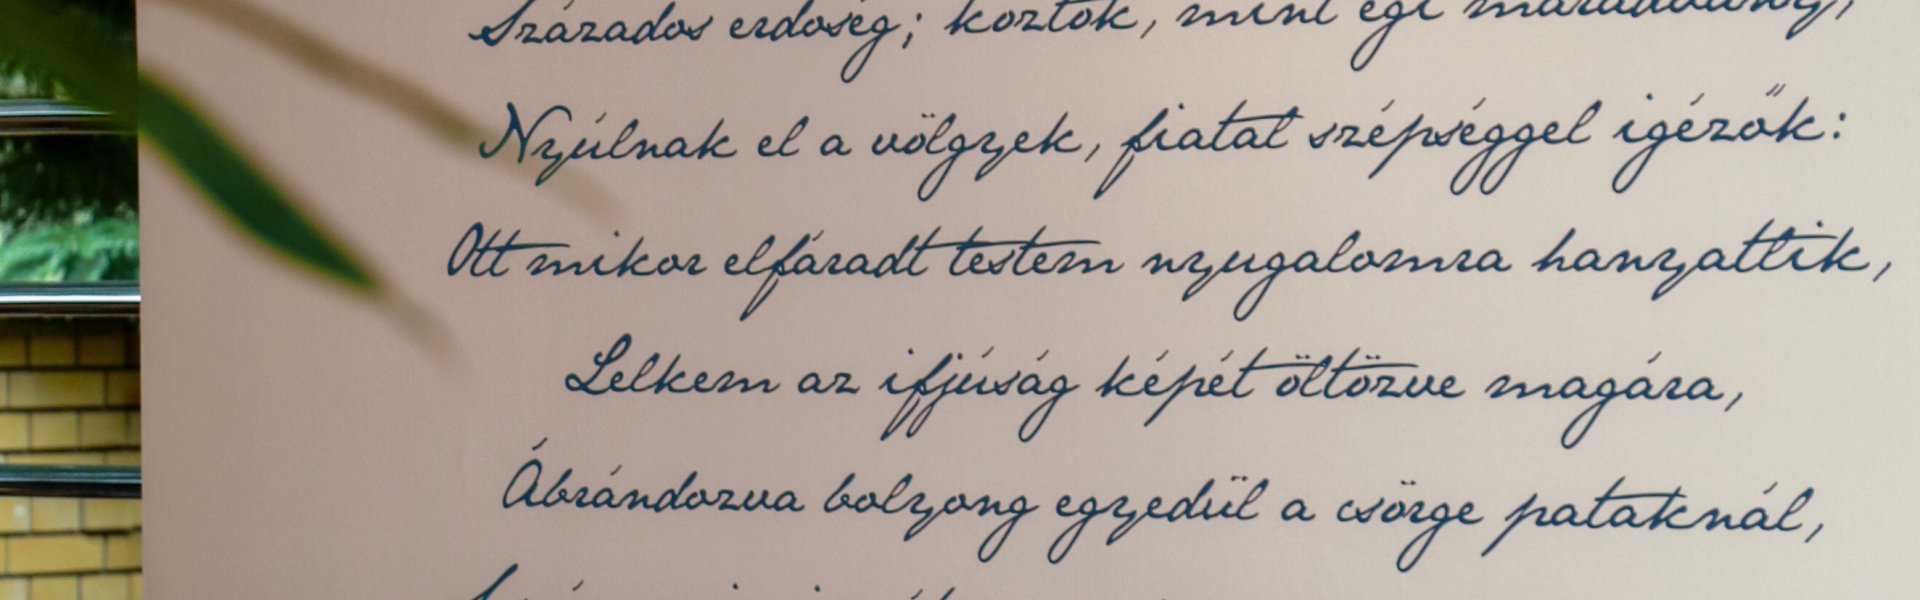 Százados erdőség; köztök, mint égi maradvány,
Nyúlnak el a völgyek, fiatal szépséggel igézők:
Ott mikor elfáradt testem nyugalomra hanyatlik,
Lelkem az ifjúság képét öltözve magára,
Ábrándozva bolyong egyedül a csörge pataknál,